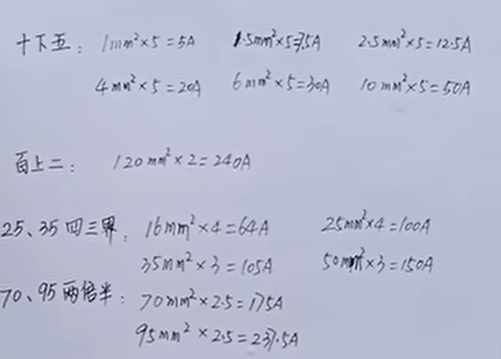 十下五: 1mm²×5=5A 1.5mm²×5=7.5A 2.5mm²×5=12.5A
4mm²×5=20A 6mm²×5=30A 10mm²×5=50A
百上二: 120mm²×2=240A
25、35四三界: 16mm²×4=64A 25mm²×4=100A
35mm²×3=105A 50mm²×3=150A
70、95两倍半: 70mm²×2.5=175A
95mm²×2.5=237.5A